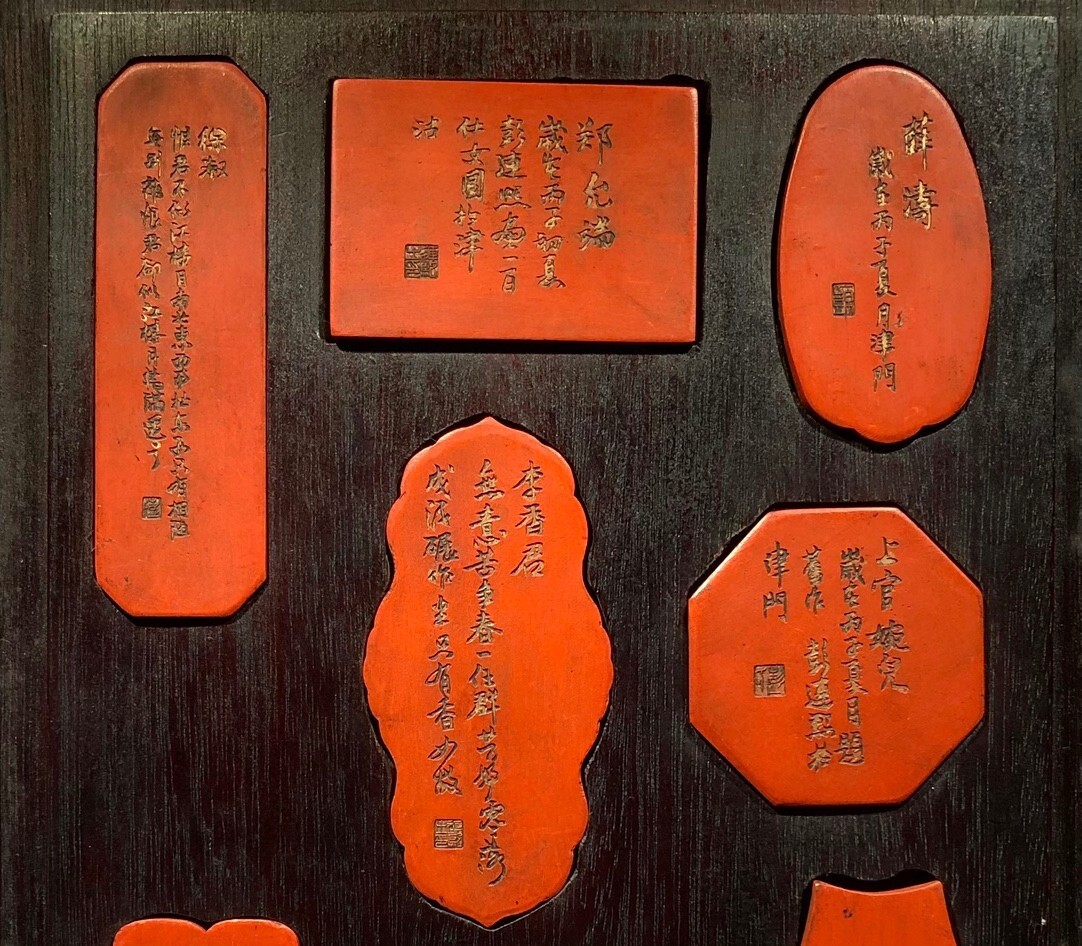 薛濤
歲在丙子夏月津門
郑允端
歲在丙子初夏
彭連熙畫一百
仕女圖於津
沽
徐淑
恨君不似江樓月南北東西南北東西只有相隨
無別離恨君卻似江樓月暫滿還
上官婉兒
歲在丙子夏月題
舊作 彭連熙於
津門
李香君
無意苦争春一任群芳妒零落
成泥碾作塵只有香如故